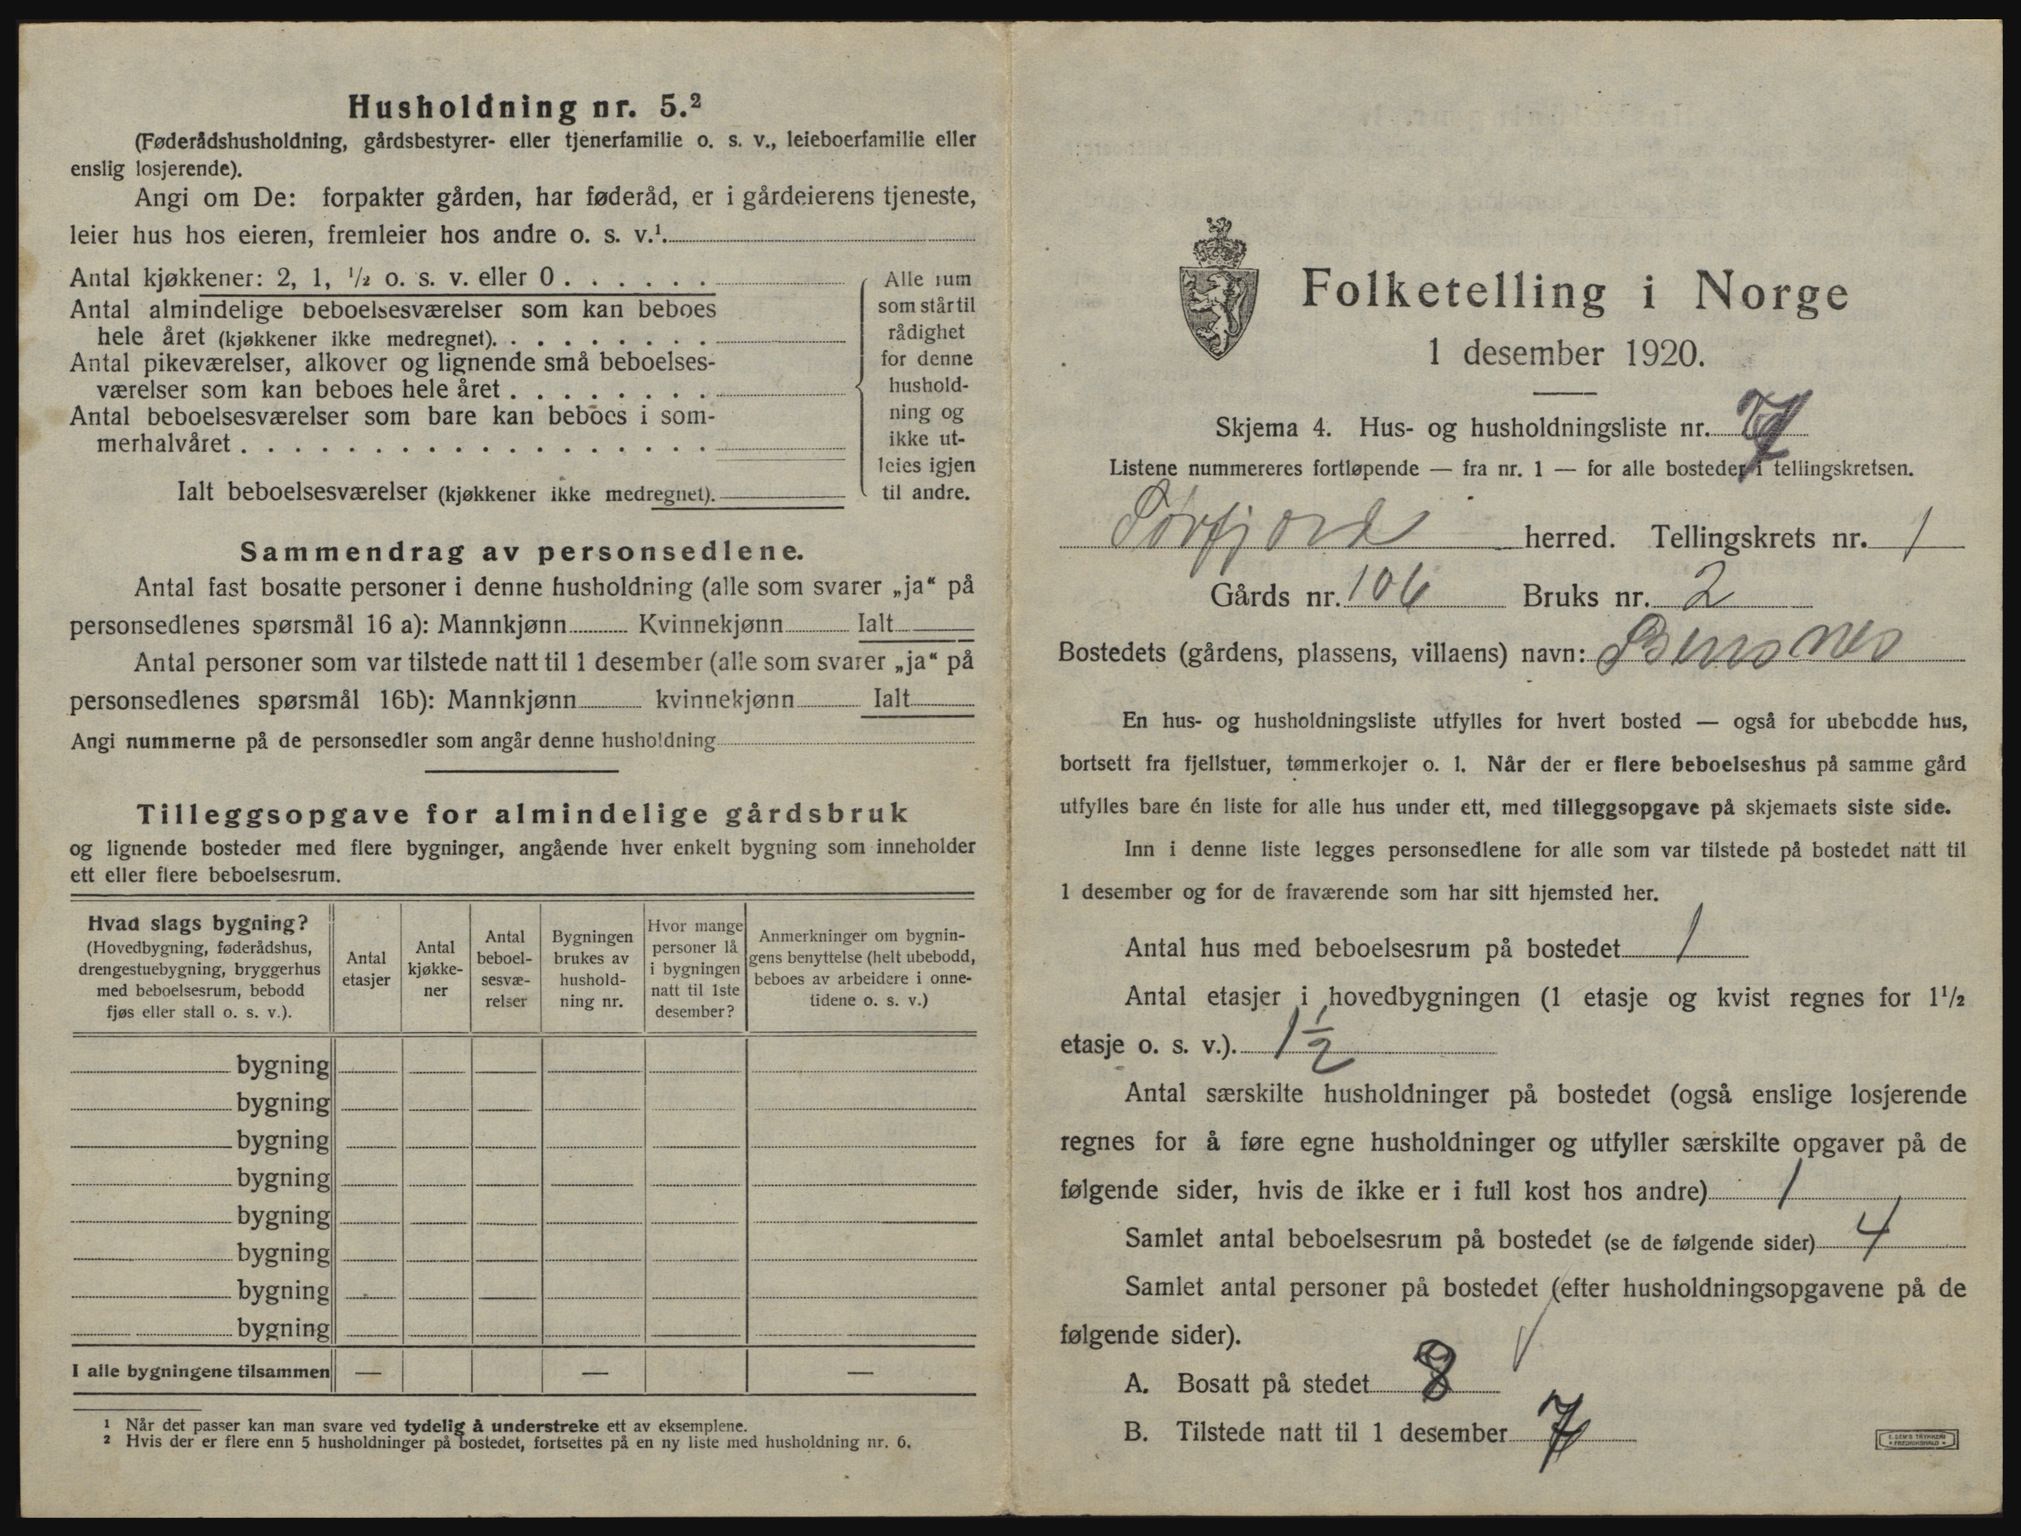 Husholdning nr. 5.²
(Føderådshusholdning, gårdsbestyrer- eller tjenerfamilie o. s. v., leieboerfamilie eller
enslig losjerende).
Angi om De: forpakter gården, har føderåd, er i gårdeierens tjeneste,
leier hus hos eieren, fremleier hos andre o. s. v.¹.
Antal kjøkkener: 2, 1, ½ o. s. v. eller 0 . . . . . .
Antal almindelige beboelsesværelser som kan beboes
hele året (kjøkkener ikke medregnet). . . . . . . . .
Antal pikeværelser, alkover og lignende små beboelses-
værelser som kan beboes hele året . . . . . . . .
Antal beboelsesværelser som bare kan beboes i som-
merhalvåret . . . . . . . . . . . . . . . . . .
Ialt beboelsesværelser (kjøkkener ikke medregnet).
Alle rum
som står til
rådighet
for denne
hushold-
ning og
ikke ut-
leies igjen
til andre.
Sammendrag av personsedlene.
Antal fast bosatte personer i denne husholdning (alle som svarer „ja“ på
personsedlenes spørsmål 16 a): Mannkjønn Kvinnekjønn Ialt
Antal personer som var tilstede natt til 1 desember (alle som svarer „ja“ på
personsedlenes spørsmål 16b): Mannkjønn kvinnekjønn Ialt
Angi nummerne på de personsedler som angår denne husholdning
Tilleggsopgave for almindelige gårdsbruk
og lignende bosteder med flere bygninger, angående hver enkelt bygning som inneholder
ett eller flere beboelsesrum.
Hvad slags bygning?
(Hovedbygning, føderådshus,
drengestuebygning, bryggerhus
med beboelsesrum, bebodd
fjøs eller stall o. s. v.).
Antal
etasjer
Antal
kjøkke-
ner
Antal
beboel-
sesvæ-
relser
Bygningen
brukes av
hushold-
ning nr.
Hvor mange
personer lå
i bygningen
natt til 1ste
desember?
Anmerkninger om bygnin-
gens benyttelse (helt ubebodd,
beboes av arbeidere i onne-
tidene o. s. v.)
bygning
bygning
bygning
bygning
bygning
bygning
bygning
bygning
I alle bygningene tilsammen — — —
¹ Når det passer kan man svare ved tydelig å understreke ett av eksemplene.
² Hvis der er flere enn 5 husholdninger på bostedet, fortsettes på en ny liste med husholdning nr. 6.
Folketelling i Norge
1 desember 1920.
Skjema 4. Hus- og husholdningsliste nr. 7
Listene nummereres fortløpende — fra nr. 1 — for alle bosteder i tellingskretsen.
Sørfjord herred. Tellingskrets nr. 1
Gårds nr. 106 Bruks nr. 2
Bostedets (gårdens, plassens, villaens) navn: Bensnes
En hus- og husholdningsliste utfylles for hvert bosted — også for ubebodde hus,
bortsett fra fjellstuer, tømmerkojer o. l. Når der er flere beboelseshus på samme gård
utfylles bare én liste for alle hus under ett, med tilleggsopgave på skjemaets siste side.
Inn i denne liste legges personsedlene for alle som var tilstede på bostedet natt til
1 desember og for de fraværende som har sitt hjemsted her.
Antal hus med beboelsesrum på bostedet 1
Antal etasjer i hovedbygningen (1 etasje og kvist regnes for 1½
etasje o. s. v.). 1½
Antal særskilte husholdninger på bostedet (også enslige losjerende
regnes for å føre egne husholdninger og utfyller særskilte opgaver på de
følgende sider, hvis de ikke er i full kost hos andre) 1
Samlet antal beboelsesrum på bostedet (se de følgende sider) 4
Samlet antal personer på bostedet (efter husholdningsopgavene på de
følgende sider).
A. Bosatt på stedet 8
B. Tilstede natt til 1 desember 7